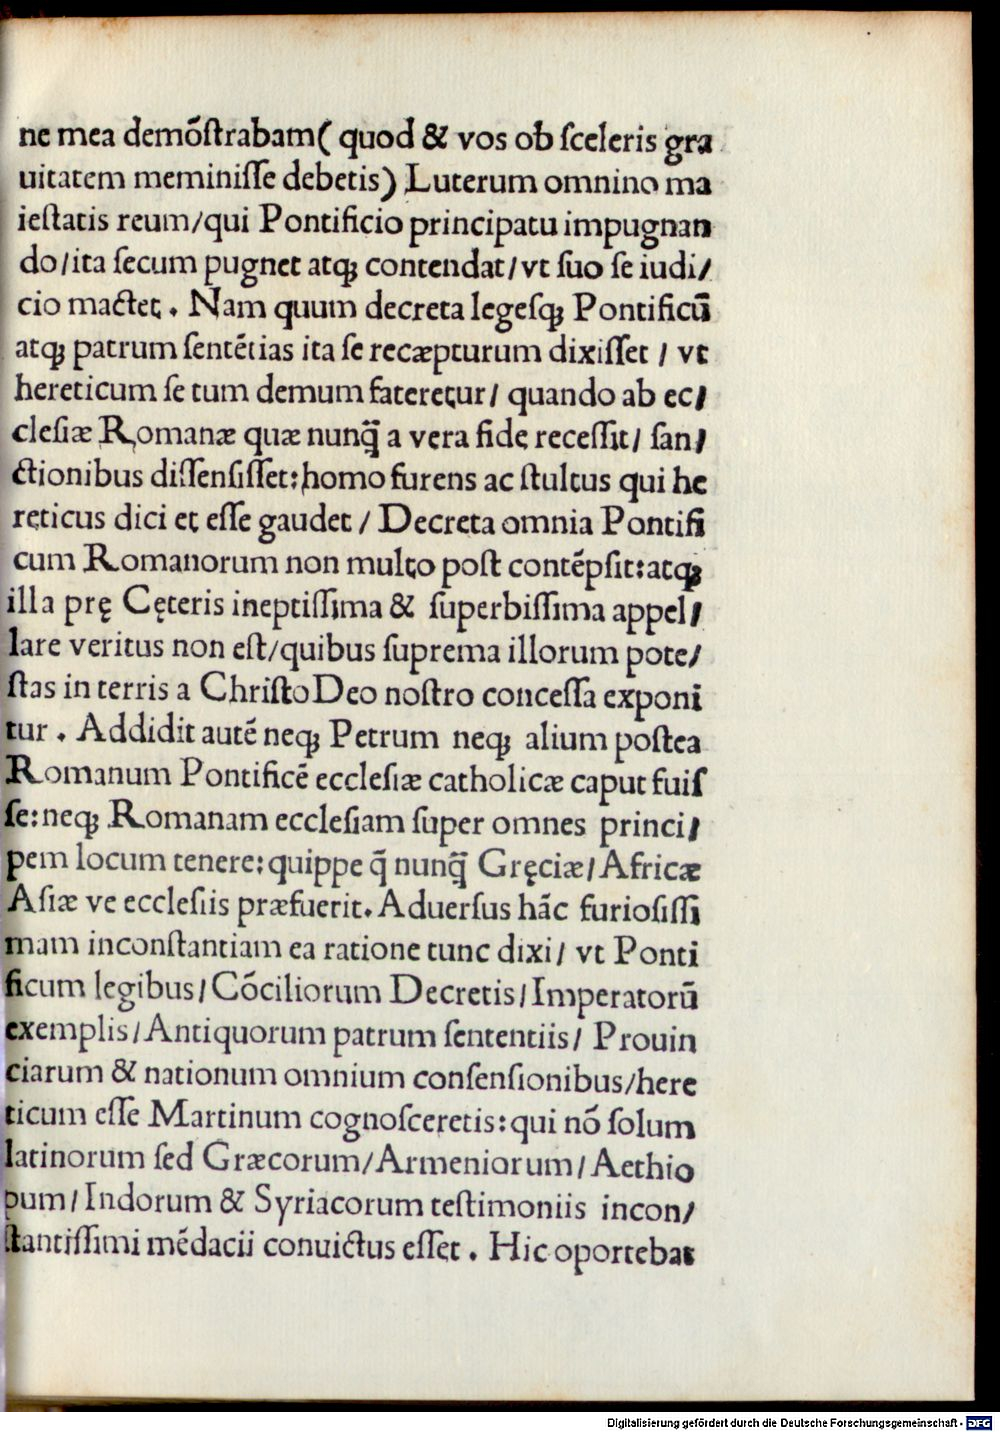 ne mea demõſtrabam( quod & vos ob ſceleris gra
uitatem meminiſſe debetis) Luterum omnino ma
ieſtatis reum/qui Pontificio principatu impugnan
do/ita ſecum pugnet atqꝫ contendat/vt ſuo ſe iudi/
cio mactet. Nam quum decreta legeſqꝫ Pontificũ
atqꝫ patrum ſentẽtias ita ſe recæpturum dixiſſet / vt
hereticum ſe tum demum fateretur/ quando ab ec/
cleſiæ Romanæ quæ nunq̃ꝫ a vera fide receſſit/ ſan/
ctionibus diſſenſiſſet:homo furens ac ſtultus qui he
reticus dici et eſſe gaudet / Decreta omnia Pontifi
cum Romanorum non multo poſt contẽpſit:atqꝫ
illa prę Cęteris ineptiſſima & ſuperbiſſima appel/
lare veritus non eſt/quibus ſuprema illorum pote/
ſtas in terris a Chriſto Deo noſtro conceſſa exponi
tur . Addidit autẽ neqꝫ Petrum neqꝫ alium poſtea
Romanum Pontificẽ eccleſiæ catholicæ caput fuiſ
ſe:neqꝫ Romanam eccleſiam ſuper omnes princi/
pem locum tenere:quippe q̃ nunq̃ꝫ Gręciæ/Africæ
Aſiæ ve eccleſiis præfuerit. Aduerſus hãc furioſiſſi
mam inconſtantiam ea ratione tunc dixi/ vt Ponti
ficum legibus/Cõciliorum Decretis/Imperatorũ
exemplis/Antiquorum patrum ſententiis/ Prouin
ciarum & nationum omnium conſenſionibus/here
ticum eſſe Martinum cognoſceretis:qui nõ ſolum
latinorum ſed Græcorum/Armeniorum/Aethio
pum/Indorum & Syriacorum teſtimoniis incon/
ſtantiſſimi mẽdacii conuictus eſſet . Hic oportebat
Digitalisierung gefördert durch die Deutsche Forschungsgemeinschaft - DFG